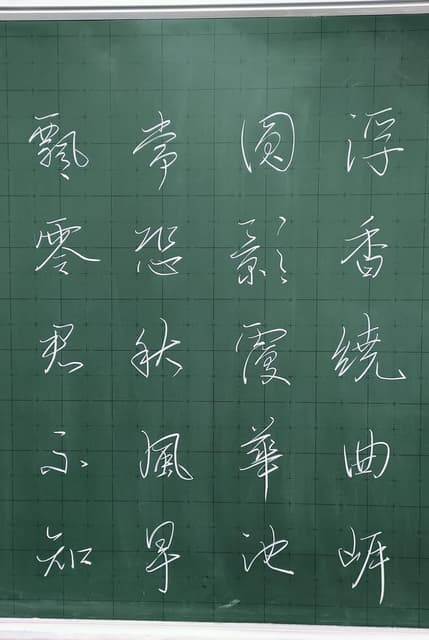 浮香繞曲岸
圓影覆華池
常恐秋風早
飄零君不知